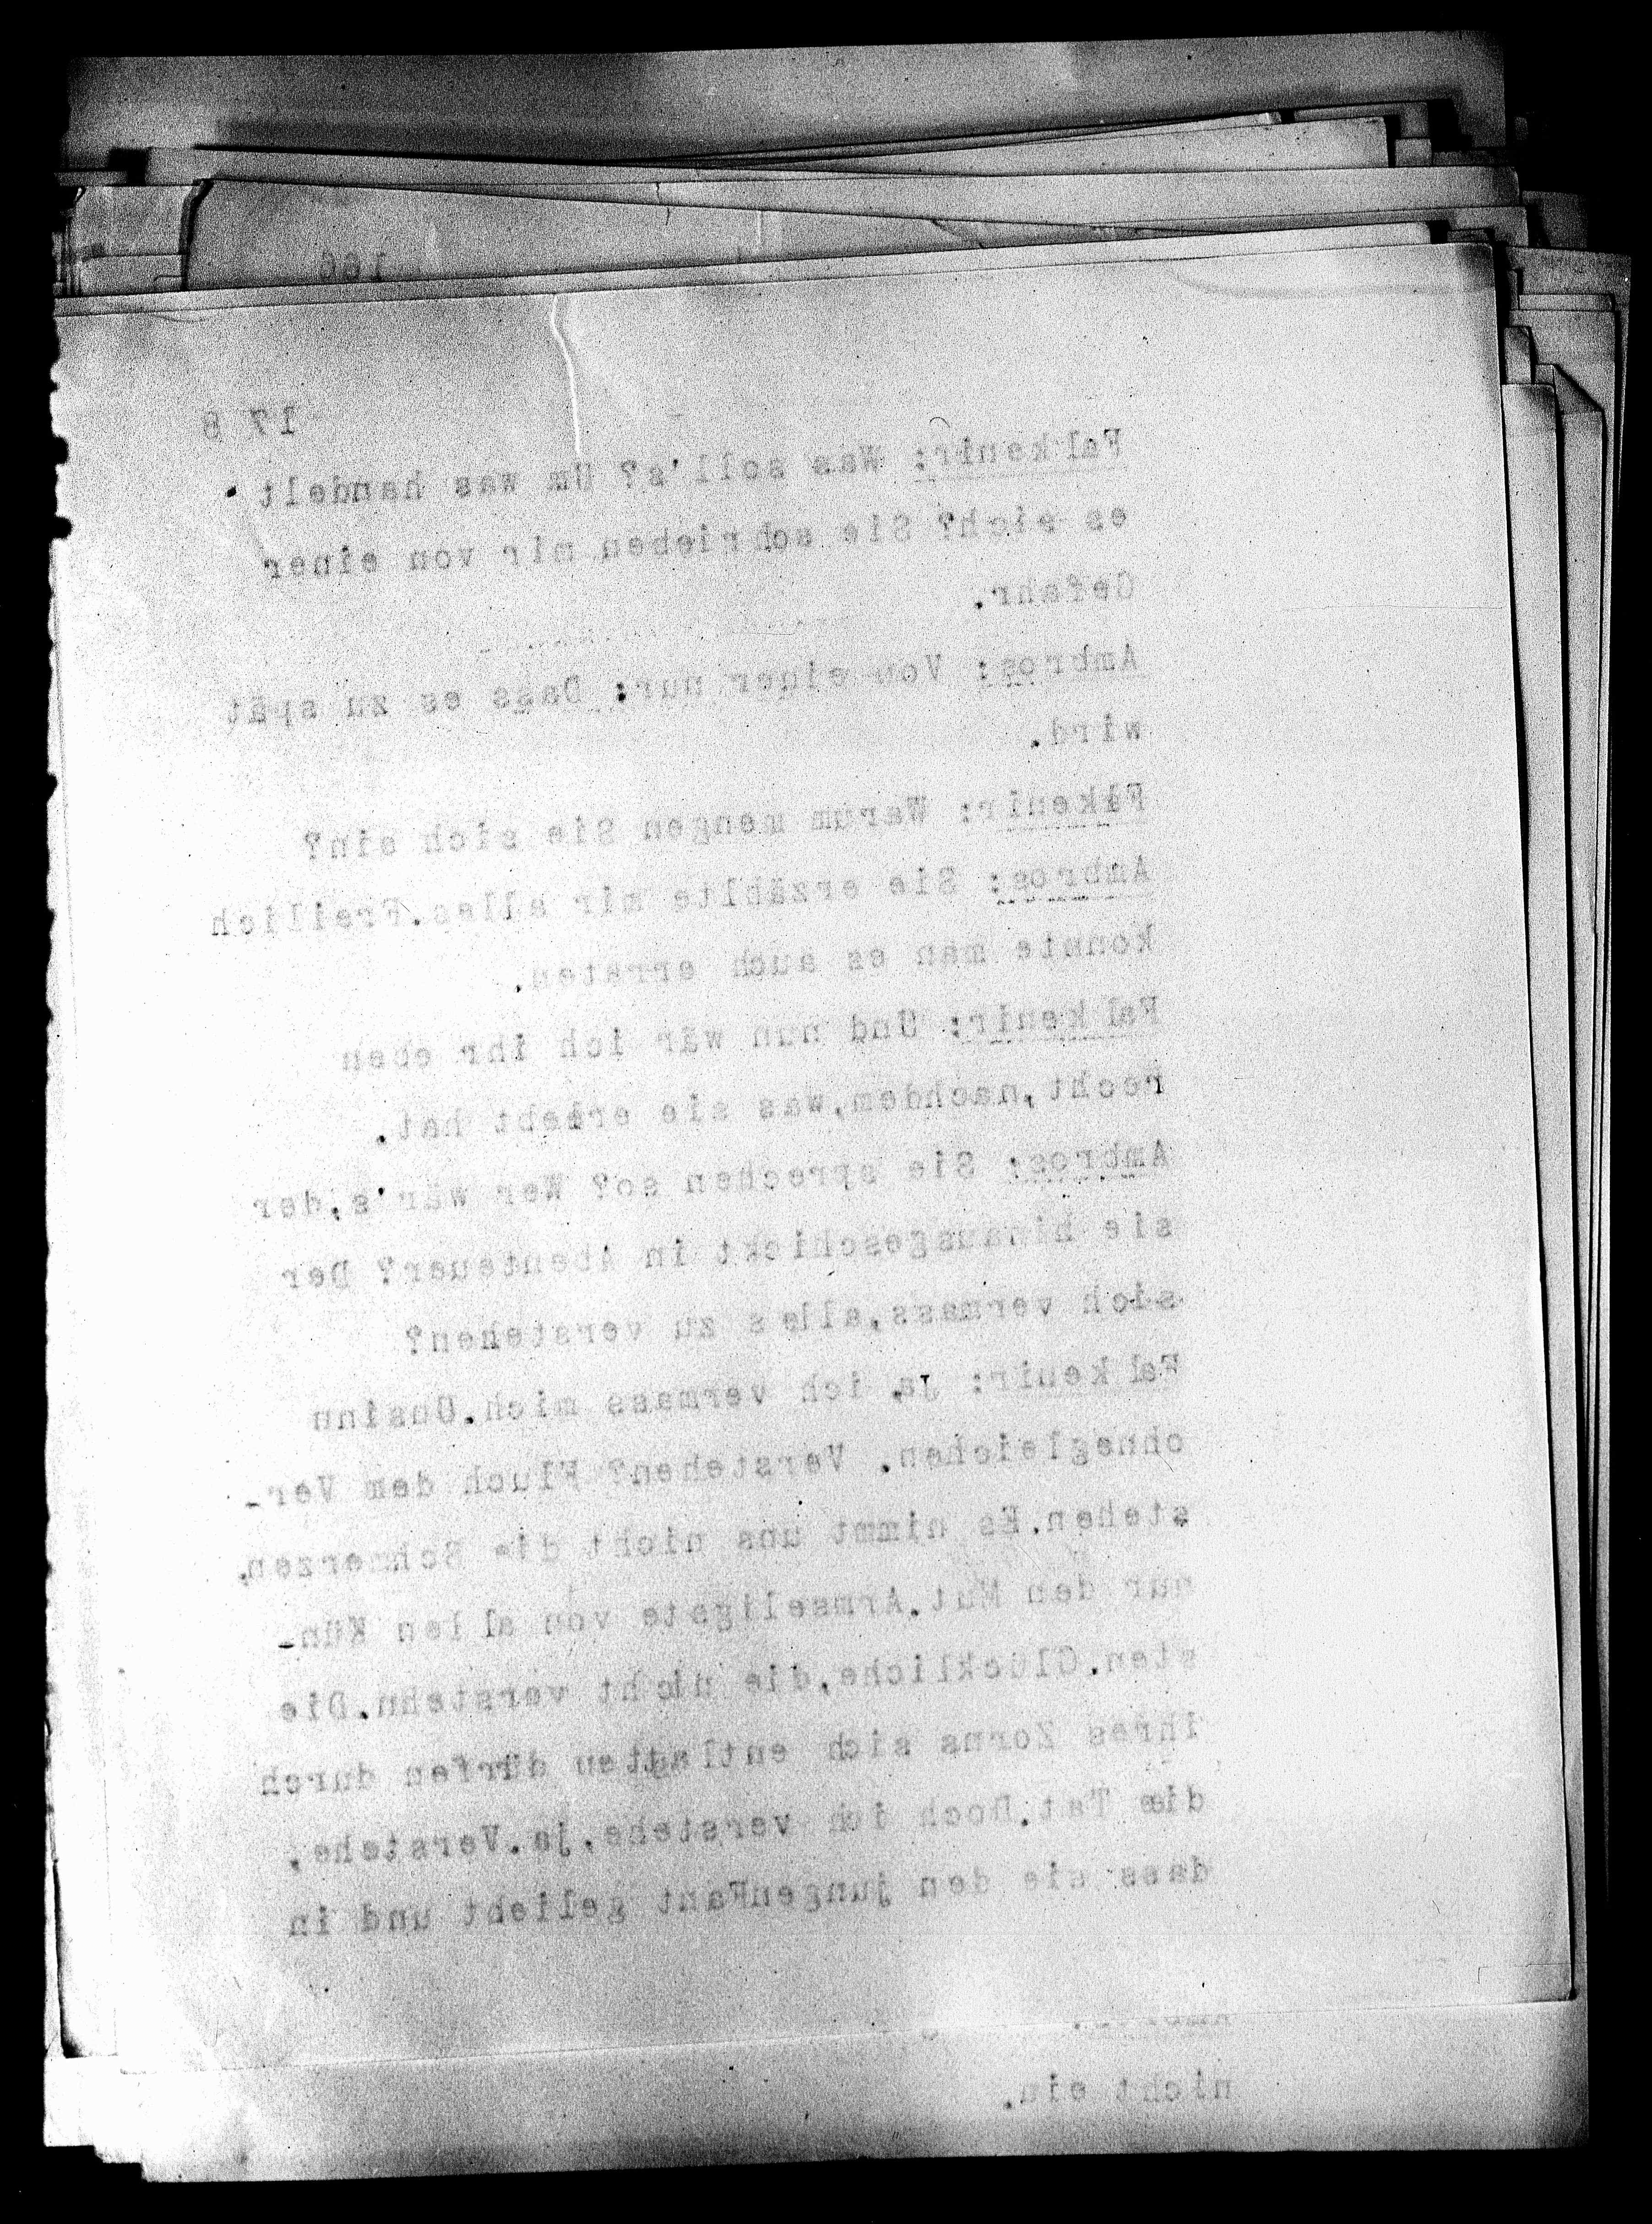 166
17 8
Falkenir: Was soll's? Um was handelt
es sich? Sie schrieben mir von einer
Gefahr.
Ambros: Von einer nur: Dass es zu spät
wird.
Fakenir: Warum mengen Sie sich ein?
Ambros: Sie erzählte mir alles.Freilich
konnte man es auch erraten.
Falkenir: Und nun wär ich ihr eben
recht,nachdem,was sie erlebt hat.
Ambros: Sie sprechen so? Wer wär's,der
sie hinausgeschickt in Abenteuer? Der
sich vermass,alles zu verstehen?
Falkenir: Ja, ich vermass mich.Unsinn
ohnegleichen. Verstehen? Fluch dem Ver-
stehen.Es nimmt uns nicht die Schmerzen,
nur den Mut.Armseligste von allen Kün-
sten.Glückliche,die nicht verstehn.Die
ihres Zorns sich entlasten dürfen durch
die Tat.Doch ich verstehe,ja.Verstehe,
dass sie den jungenFant geliebt und in
nicht ein.